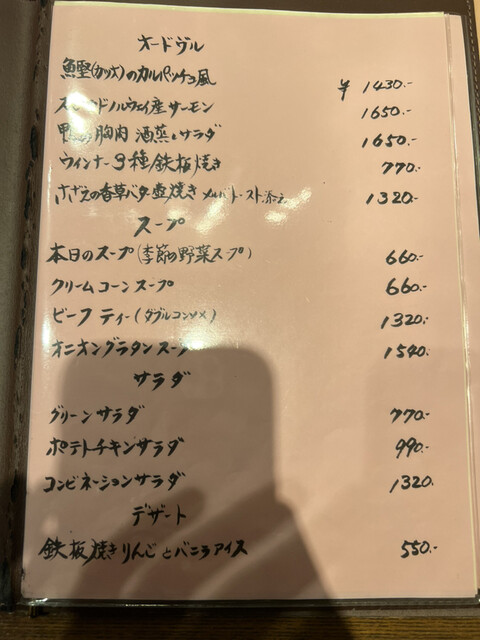 オードヴル
鰹(カツオ)のカルパッチョ風 ¥1430.-
スモークドノルウェイ産サーモン 1650.-
鴨の胸肉 酒蒸しサラダ 1650.-
ウィンナー3種鉄板焼き 770.-
さざえの香草バター壺焼き メルバトースト添え 1320.-
スープ
本日のスープ(季節の野菜スープ) 660.-
クリームコーンスープ 660.-
ビーフティー(ダブルコンソメ) 1320.-
オニオングラタンスープ 1540.-
サラダ
グリーンサラダ 770.-
ポテトチキンサラダ 990.-
コンビネーションサラダ 1320.
デザート
鉄板焼きりんごとバニラアイス 550.-